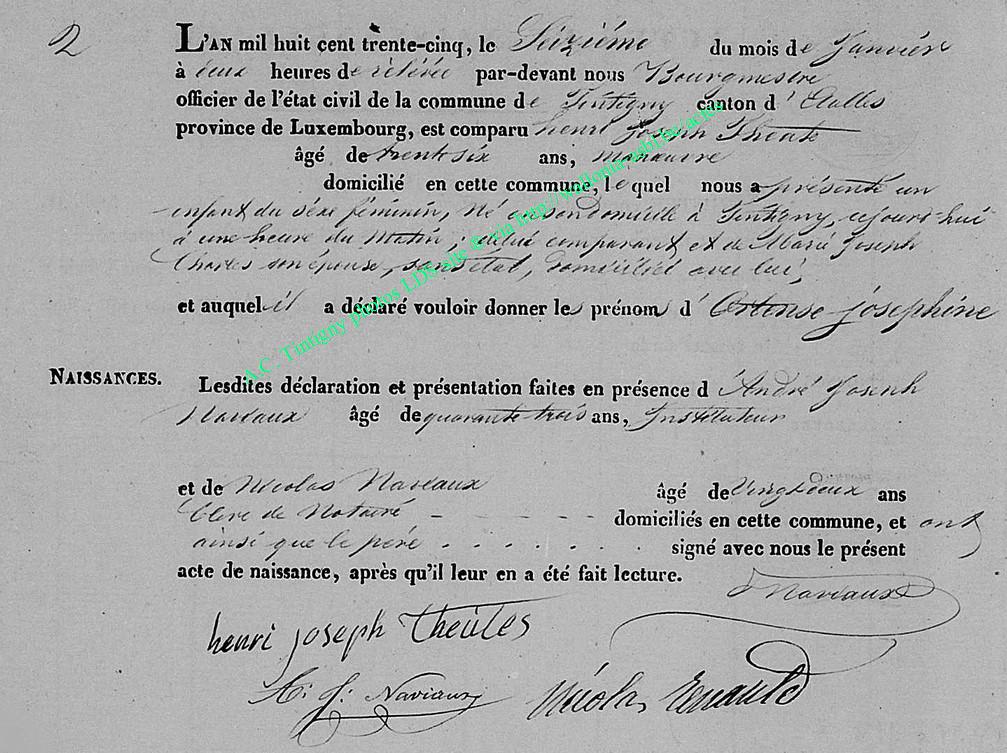 2
L'AN mil huit cent trente-cinq, le Seizième du mois de Janvier
à deux heures de relévée par-devant nous Bourgmestre
officier de l'état civil de la commune de Tintigny canton d'Etalles
province de Luxembourg, est comparu henri Joseph
âgé de trent six ans, manœuvre
domicilié en cette commune, lequel nous a présenté un
enfant du séxe féminin, né en son domicile à Tintigny, cejourd'hui
à une heure du Matin, dudit comparant et de Marie Joseph
Charles son épouse, sans état, domiciliée avec lui,
et auquel il a déclaré vouloir donner les prénoms d'Ortense josephine
NAISSANCES.
Lesdites déclaration et présentation faites en présence d'André Joseph
Naviaux âgé de quarante trois ans, Instituteur
et de Nicolas Naviaux âgé de vingt deux ans
Clerc de Notaire - - - - domiciliés en cette commune, et ont
ainsi que le pére . . . . . . signé avec nous le présent
acte de naissance, après qu'il leur en a été fait lecture.
Naviaux
henri joseph Theûtes
A. J. Naviaux Nicolas
A.C. Tintigny photos LDS site & via http://wallonia-asbl.be/actes